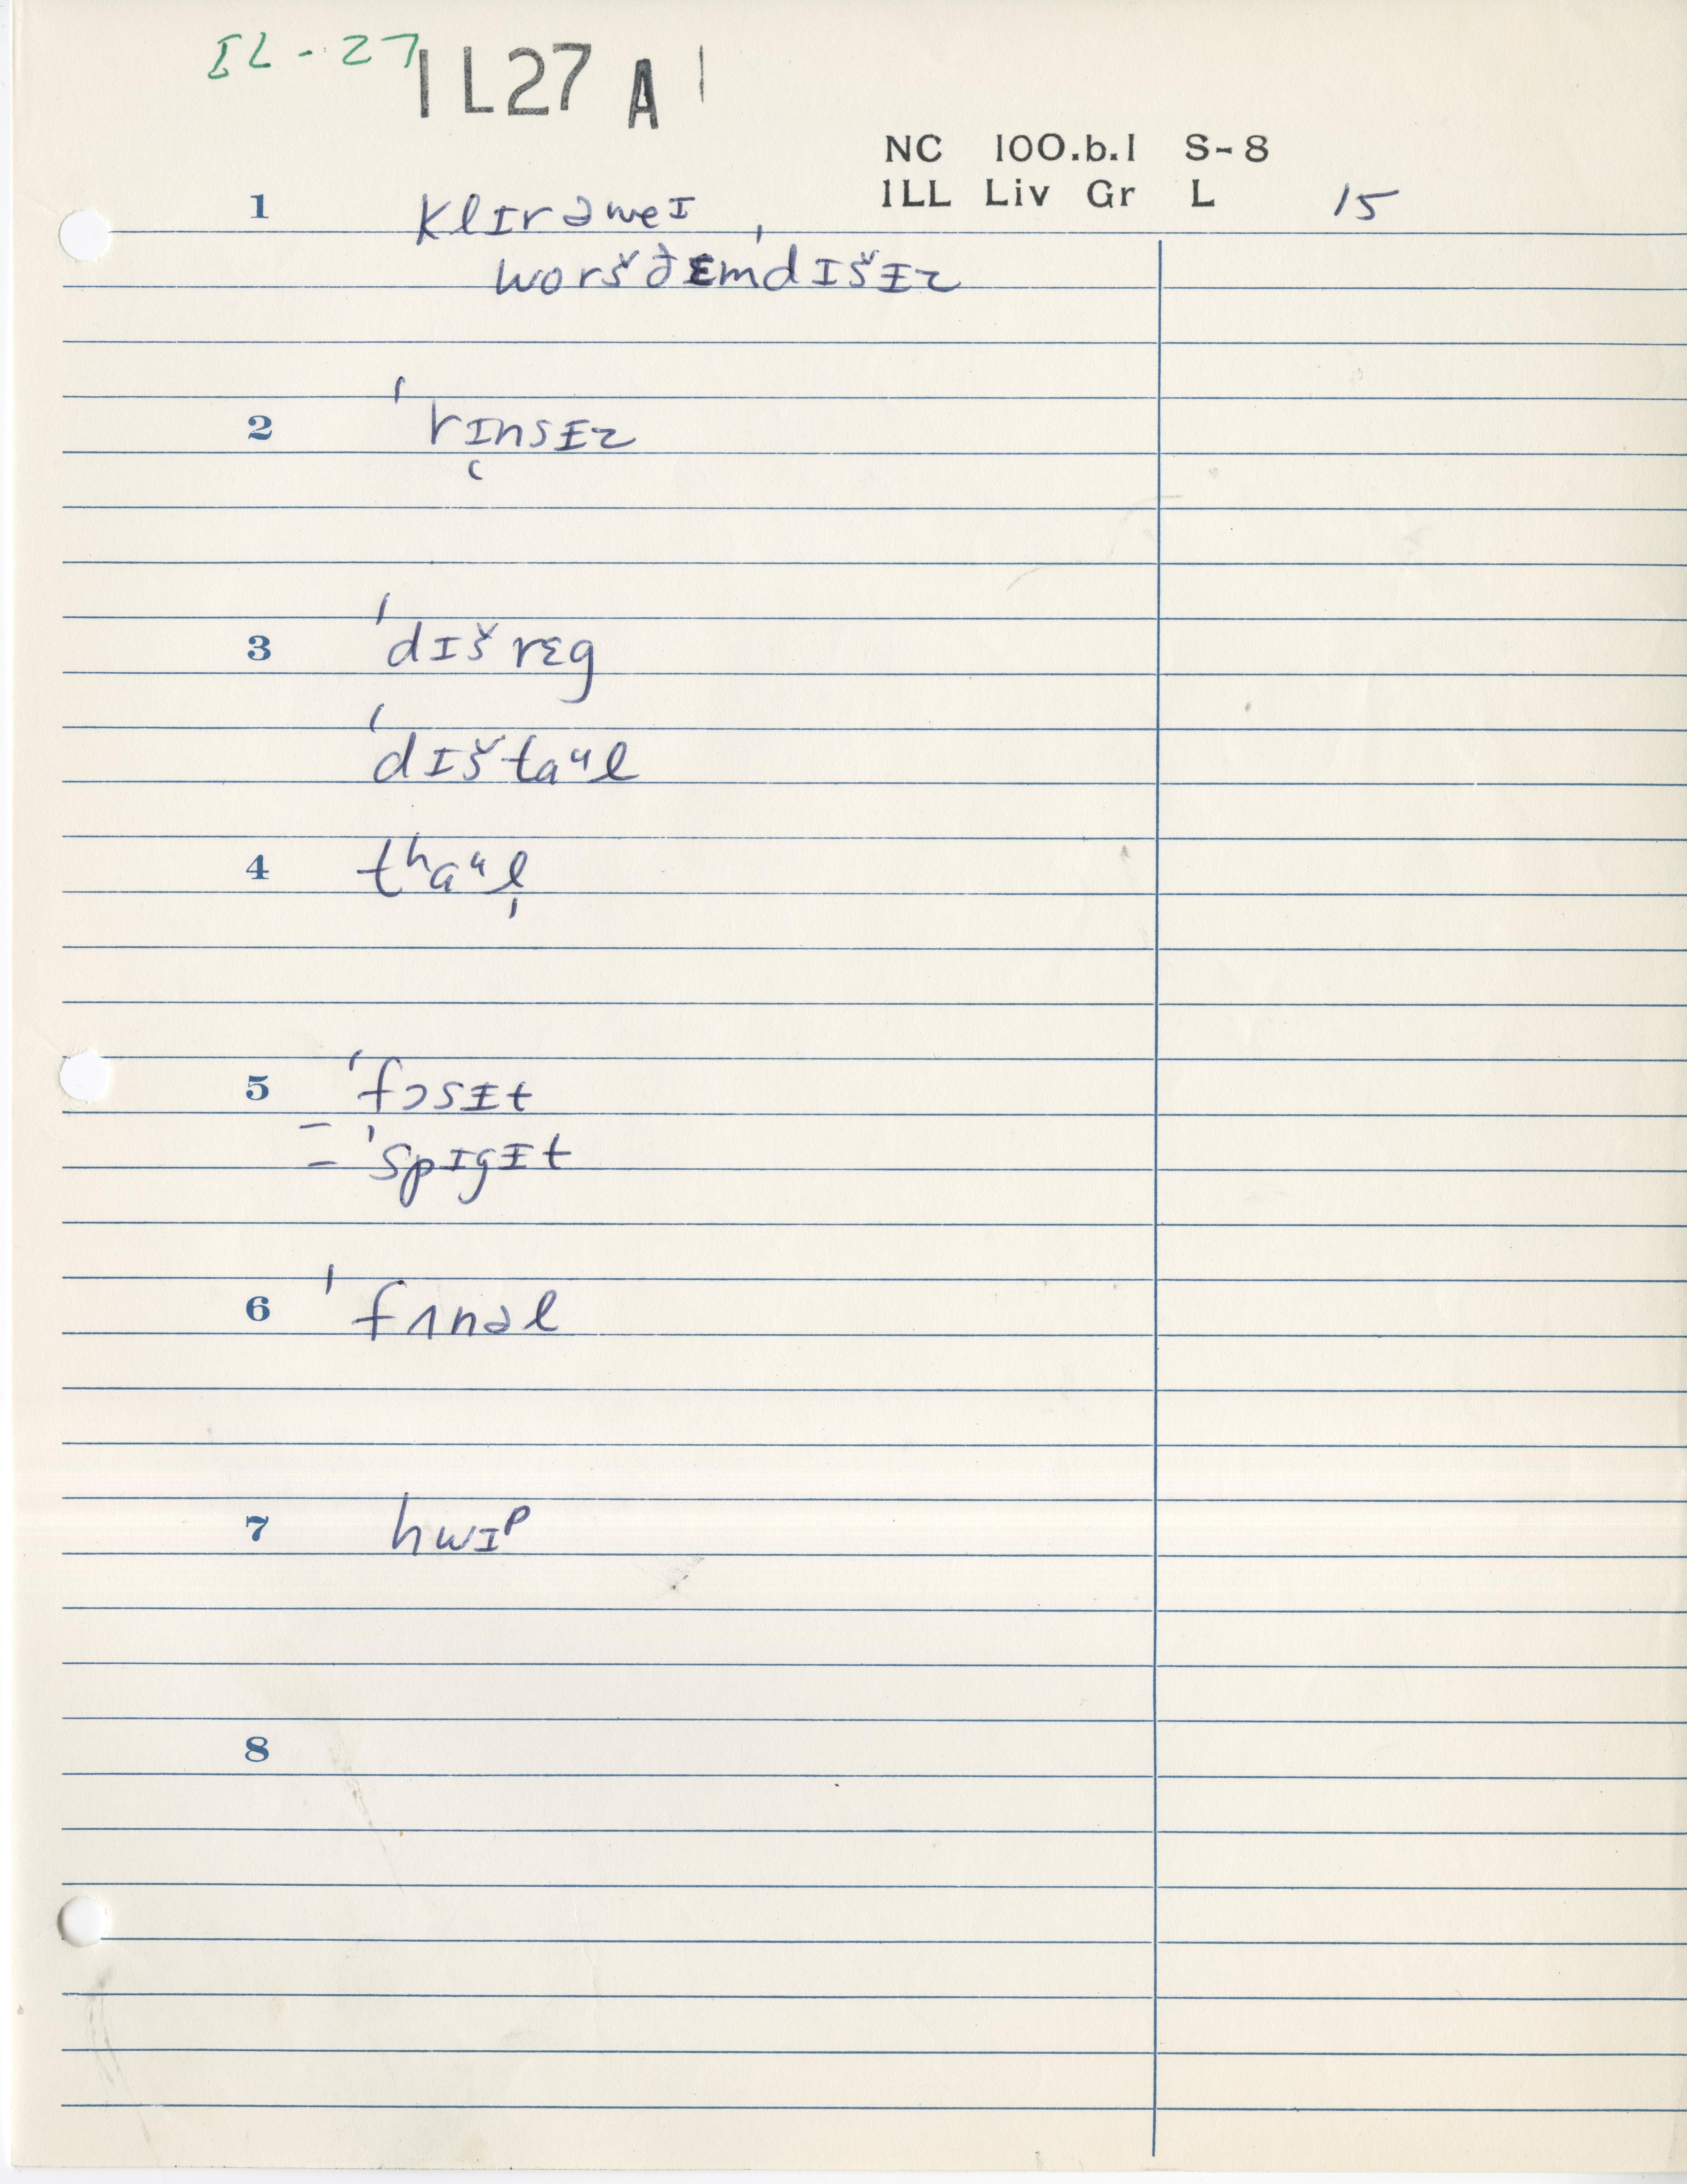 IL-27
IL27 A
NC 100.b.1 S-8
ILL Liv Gr L 15
1 klɪrəweɪ
worš ðɛmˈdɪšɪ̵z
2 ˈrɪnsɪ̵z
3 ˈdɪšrɛg
ˈdɪštaᵘl
4 tʰaᵘl̩
5 ˈfɔsɪ̵t
= ˈspɪgɪ̵t
6 ˈfʌnəl
7 hwɪᵖ
8